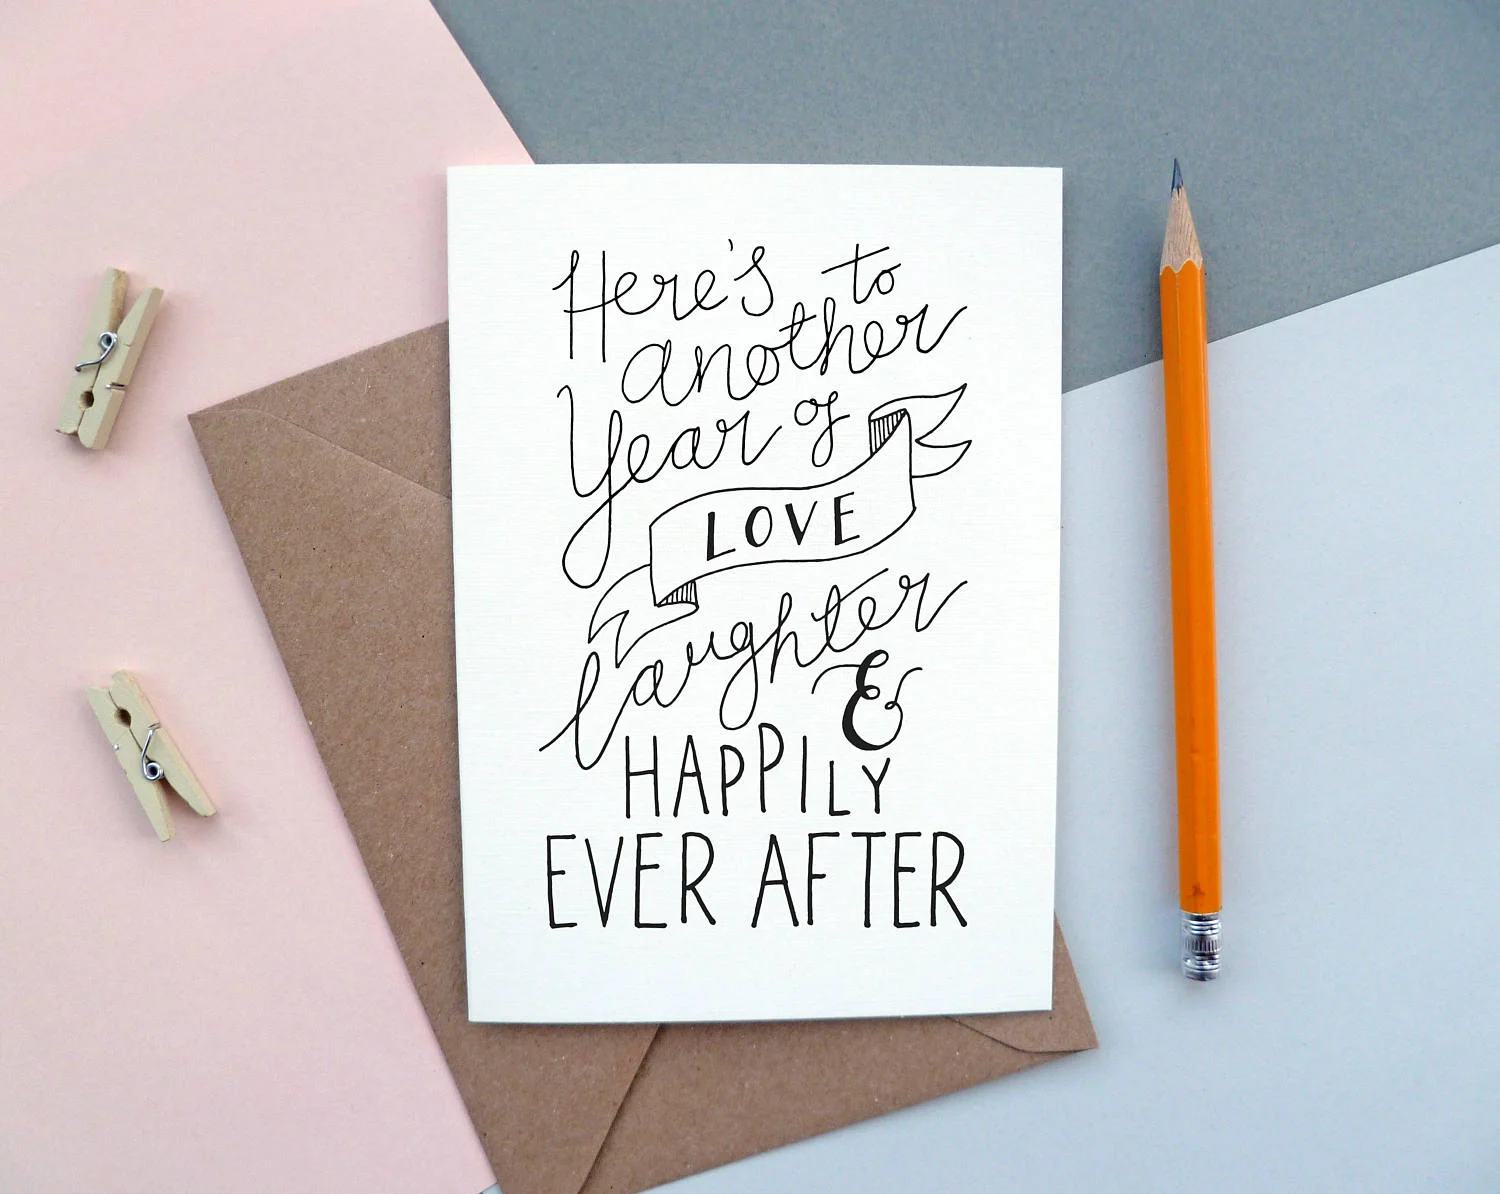 Here's to
another
Year of
LOVE
laughter
&
HAPPILY
EVER AFTER